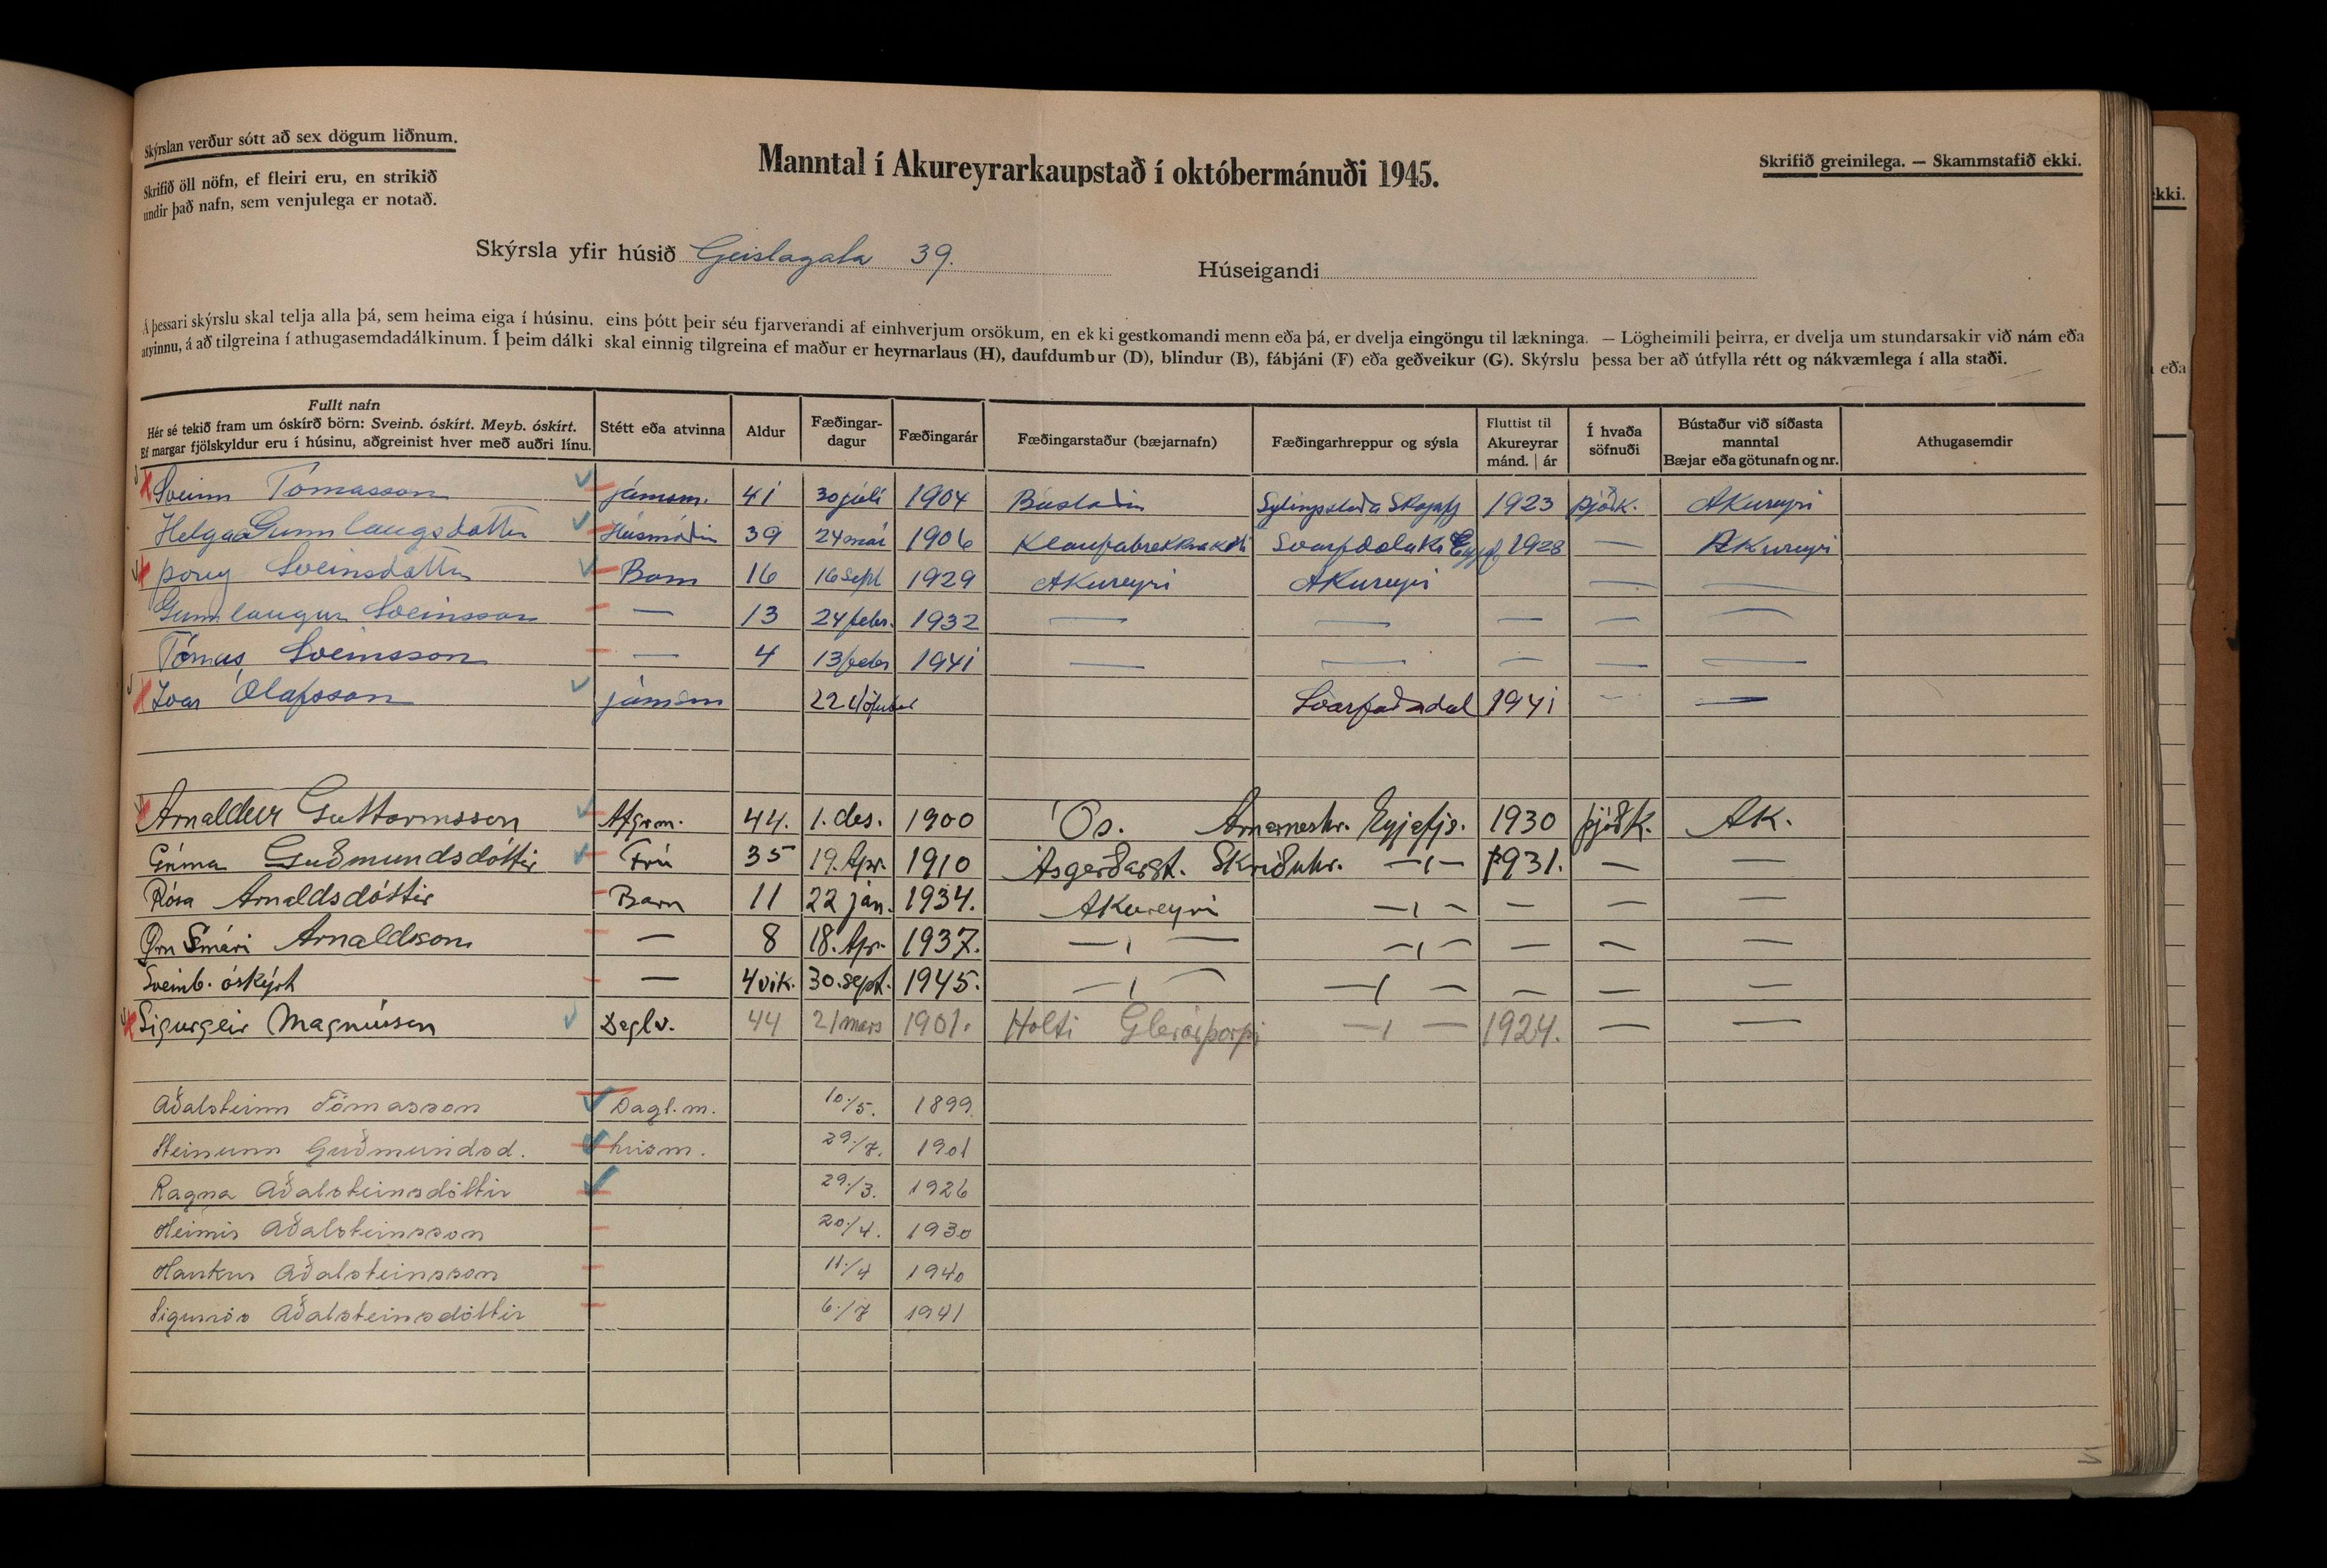 Skýrslan verður sótt að sex dögum liðnum.
Skrifið öll nöfn, ef fleiri eru, en strikið
undir það nafn, sem venjulega er notað.
Manntal í Akureyrarkaupstað í októbermánuði 1945.
Skrifið greinilega. — Skammstafið ekki.
Skýrsla yfir húsið Geislagata 39.
Húseigandi
Á þessari skýrslu skal telja alla þá, sem heima eiga í húsinu, eins þótt þeir séu fjarverandi af einhverjum orsökum, en ekki gestkomandi menn eða þá, er dvelja eingöngu til lækninga. — Lögheimili þeirra, er dvelja um stundarsakir við nám eða
atvinnu, á að tilgreina í athugasemdadálkinum. Í þeim dálki skal einnig tilgreina ef maður er heyrnarlaus (H), daufdumbur (D), blindur (B), fábjáni (F) eða geðveikur (G). Skýrslu þessa ber að útfylla rétt og nákvæmlega í alla staði.
Fullt nafn
Hér sé tekið fram um óskírð börn: Sveinb. óskírt. Meyb. óskírt.
Ef margar fjölskyldur eru í húsinu, aðgreinist hver með auðri línu.
Stétt eða atvinna
Aldur
Fæðingar-
dagur
Fæðingarár
Fæðingarstaður (bæjarnafn)
Fæðingarhreppur og sýsla
Fluttist til
Akureyrar
mánd. | ár
Í hvaða
söfnuði
Bústaður við síðasta
manntal
Bæjar eða götunafn og nr.
Athugasemdir
Sveinn Tómasson járnsm. 41 30 júlí 1904 Bústaðir 1923 Þjóðk. Akureyri
Helga Gunnlaugsdóttir Húsmóðir 39 24 maí 1906 1928 — Akureyri
Þórey Sveinsdóttir Barn 16 16 sept 1929 Akureyri Akureyri — —
Gunnlaugur Sveinsson — 13 24 febr. 1932 — — — — —
Tómas Sveinsson — 4 13 febr 1941 — — — — —
Ivar Ólafsson járnsm 22 Svarfaðadal 1941 — —
Arnaldur Guttormsson Afgrm. 44. 1. des. 1900 Ós. Arnarneshr. Eyjafjs. 1930 Þjóðk. Ak.
Guðmundsdóttir Frú 35 19. Apr. 1910 Ásgerðarst. Skriðuhr. —ı— 1931. — —
Rósa Arnaldsdóttir Barn 11 22 jan. 1934. Akureyri —ı— — — —
Örn Smári Arnaldsson — 8 18. Apr. 1937. —ı— —ı— — — —
Sveinb. óskýrt — 4 vik. 30. sept. 1945. —ı— —ı— — — —
Sigurgeir Magnússon Daglv. 44 21 mars 1901. Holti Glerárþorpi —ı— 1924. — —
Aðalsteinn Tómasson Dagl.m. 10./5. 1899
Steinunn Guðmundsd. húsm. 29./7. 1901
Ragna Aðalsteinsdóttir 29./3. 1926
Heimir Aðalsteinsson 20./4. 1930
Haukur Aðalsteinsson 11./4 1940
Sigurrós Aðalsteinsdóttir 6./7 1941